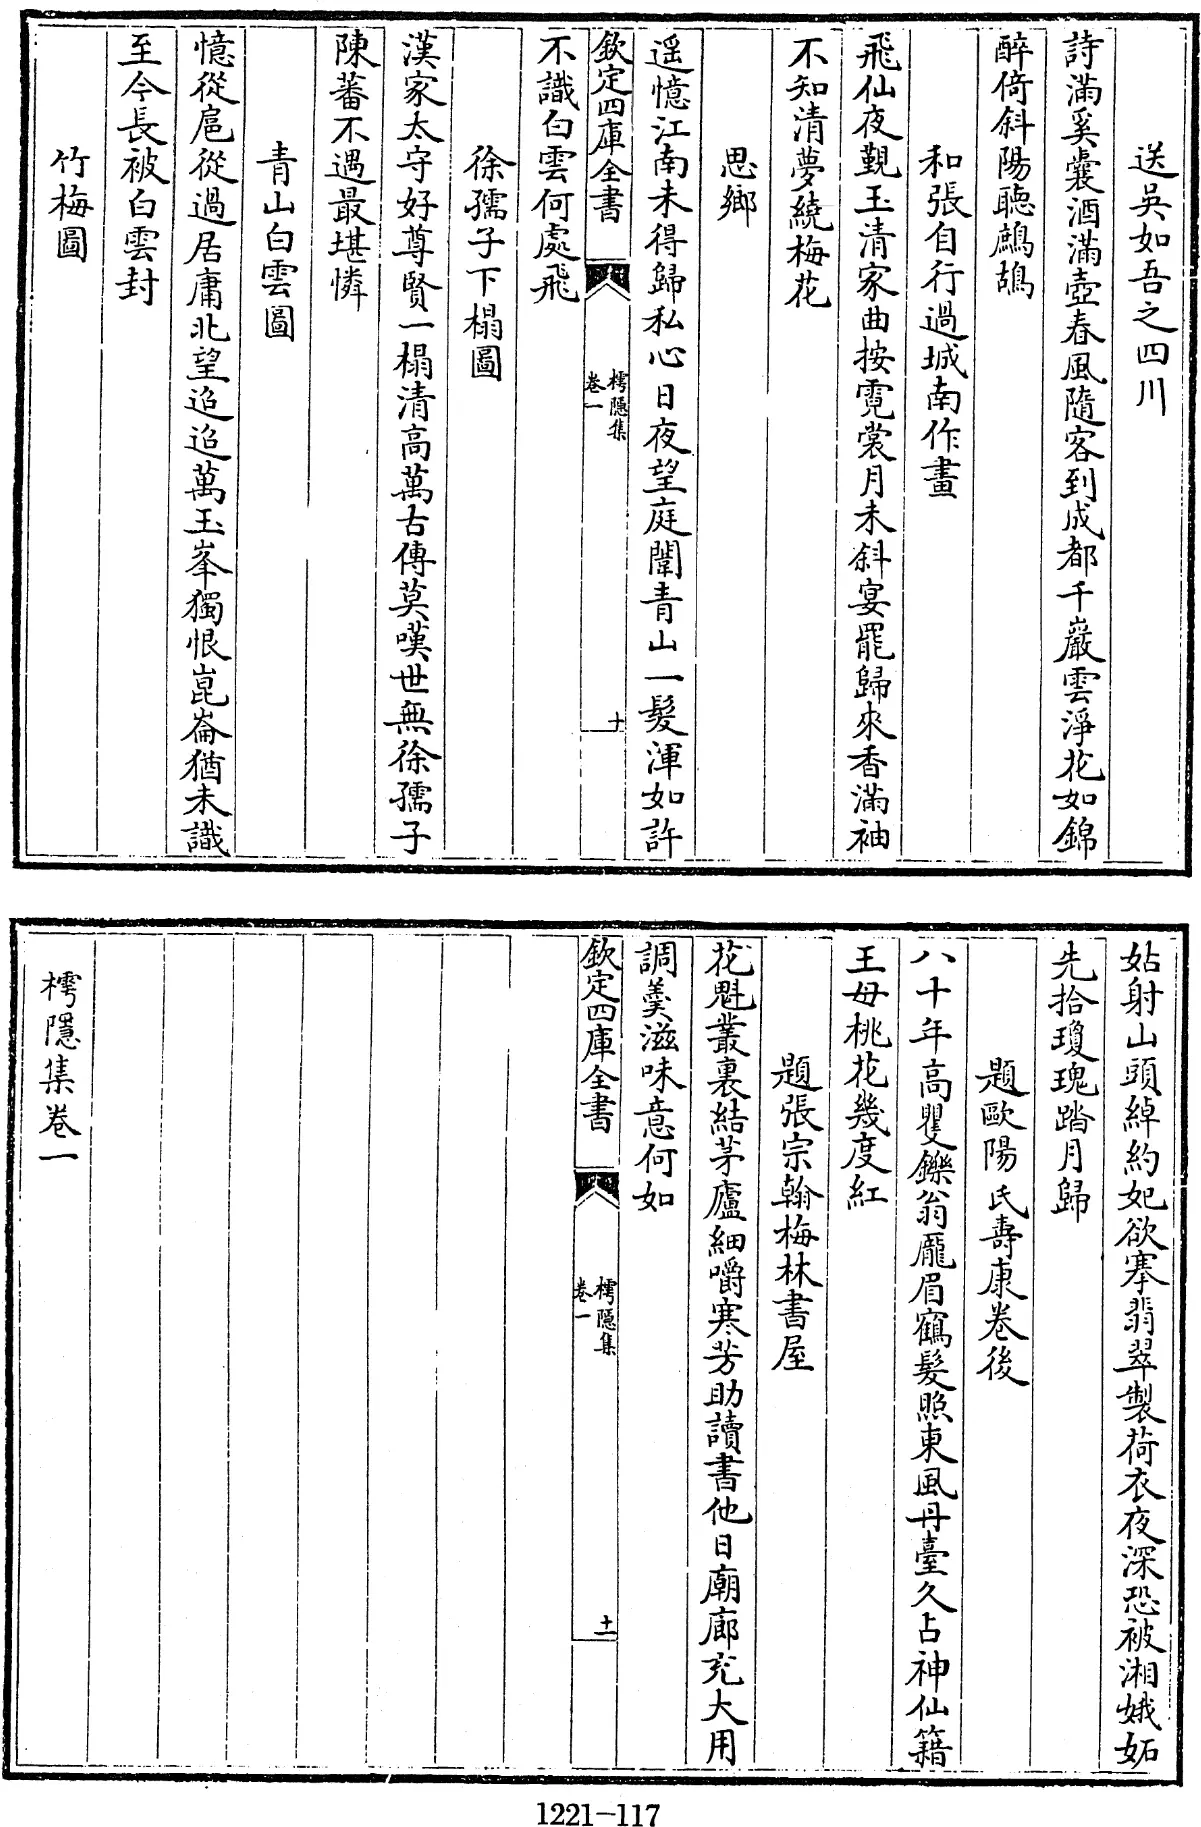 送吳如吾之四川
詩滿奚囊酒滿壺春風隨客到成都千巖雲淨花如錦
醉倚斜陽聽鷓鴣
和張自行過城南作畫
飛仙夜覲玉清家曲按霓裳月未斜宴罷歸來香滿袖
不知清夢繞梅花
思鄉
遥憶江南未得歸私心日夜望庭闈青山一髮渾如許
欽定四庫全書
樗隱集
卷一
十
不識白雲何處飛
徐孺子下榻圖
漢家太守好尊賢一榻清高萬古傳莫嘆世無徐孺子
陳蕃不遇最堪憐
青山白雲圖
憶從扈從過居庸北望迢迢萬玉峯獨恨崑崙猶未識
至今長被白雲封
竹梅圖
姑射山頭綽約妃欲搴翡翠製荷衣夜深恐被湘娥妬
先拾瓊瑰踏月歸
題歐陽氏壽康卷後
八十年高矍鑠翁龐眉鶴髮照東風丹臺久占神仙籍
王母桃花幾度紅
題張宗翰梅林書屋
花魁叢裏結茅廬細嚼寒芳助讀書他日廟廊充大用
調羹滋味意何如
欽定四庫全書
樗隱集
卷一
十一
樗隱集卷一
1221-117